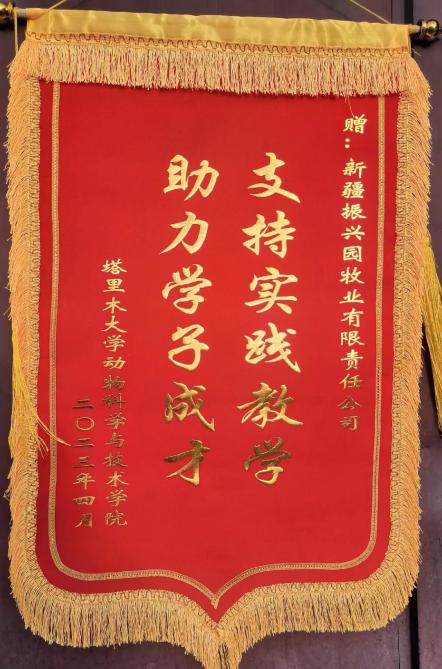 赠：新疆振兴园牧业有限责任公司
支持实践教学
助力学子成才
塔里木大学动物科学与技术学院
二〇二三年四月